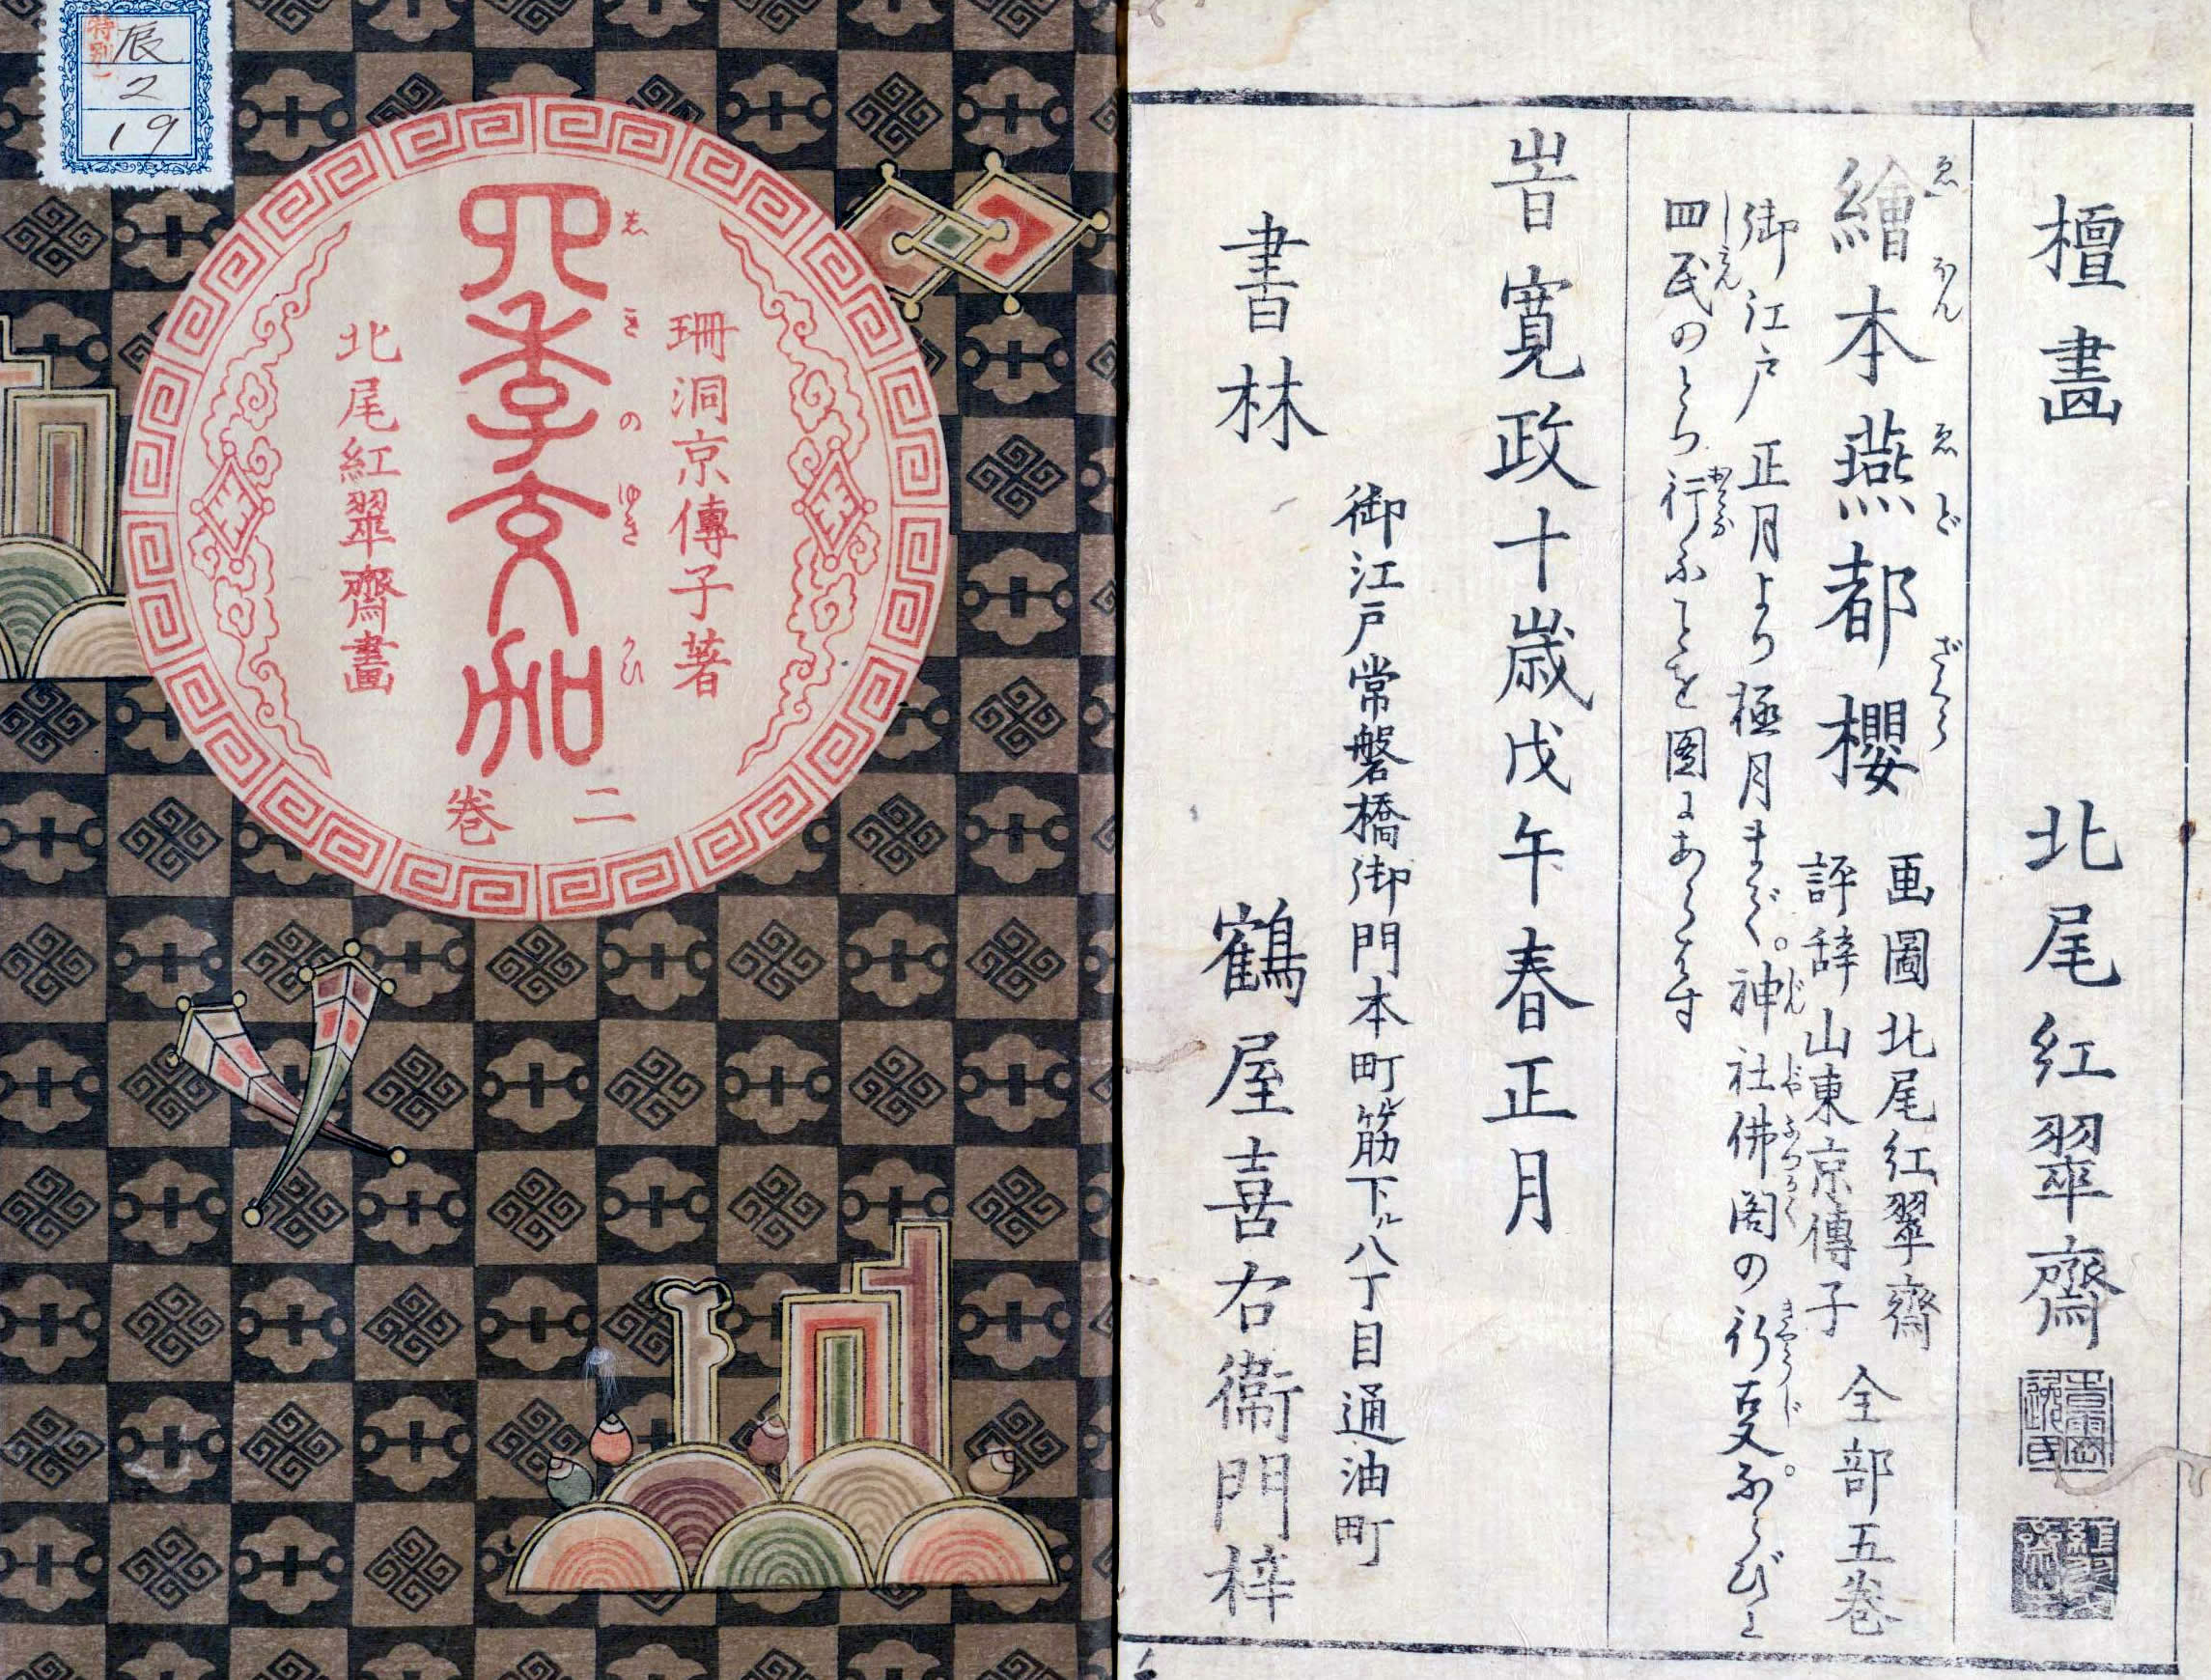 特別
辰
2
19
珊洞京傳子著
四季交加
しきのゆきかひ
北尾紅翠齋畫
二巻
檀畫　北尾紅翠齋
繪本燕都櫻
ゑほんゑどざくら
画圖北尾紅翠齋
評辞山東京傳子
全部五巻
御江戸正月より極月まで。神社佛閣の行事。ならびに
じんじやぶつかくのぎやうじ
四民のとり行ふことを圖にあらはす
しみん
おこな
旹寛政十歳戊午春正月
御江戸常磐橋御門本町筋下ル八丁目通油町
書林　鶴屋喜右衞門梓